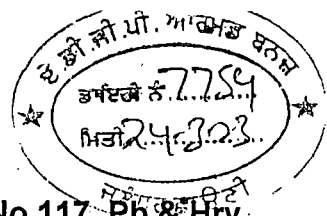 ਏ.ਡੀ.ਜੀ.ਪੀ. ਆਰਮਡ ਬਨਜ਼
ਨੰ. 7754
ਮਿਤੀ 24-3-03
No.117, Pb & Hry